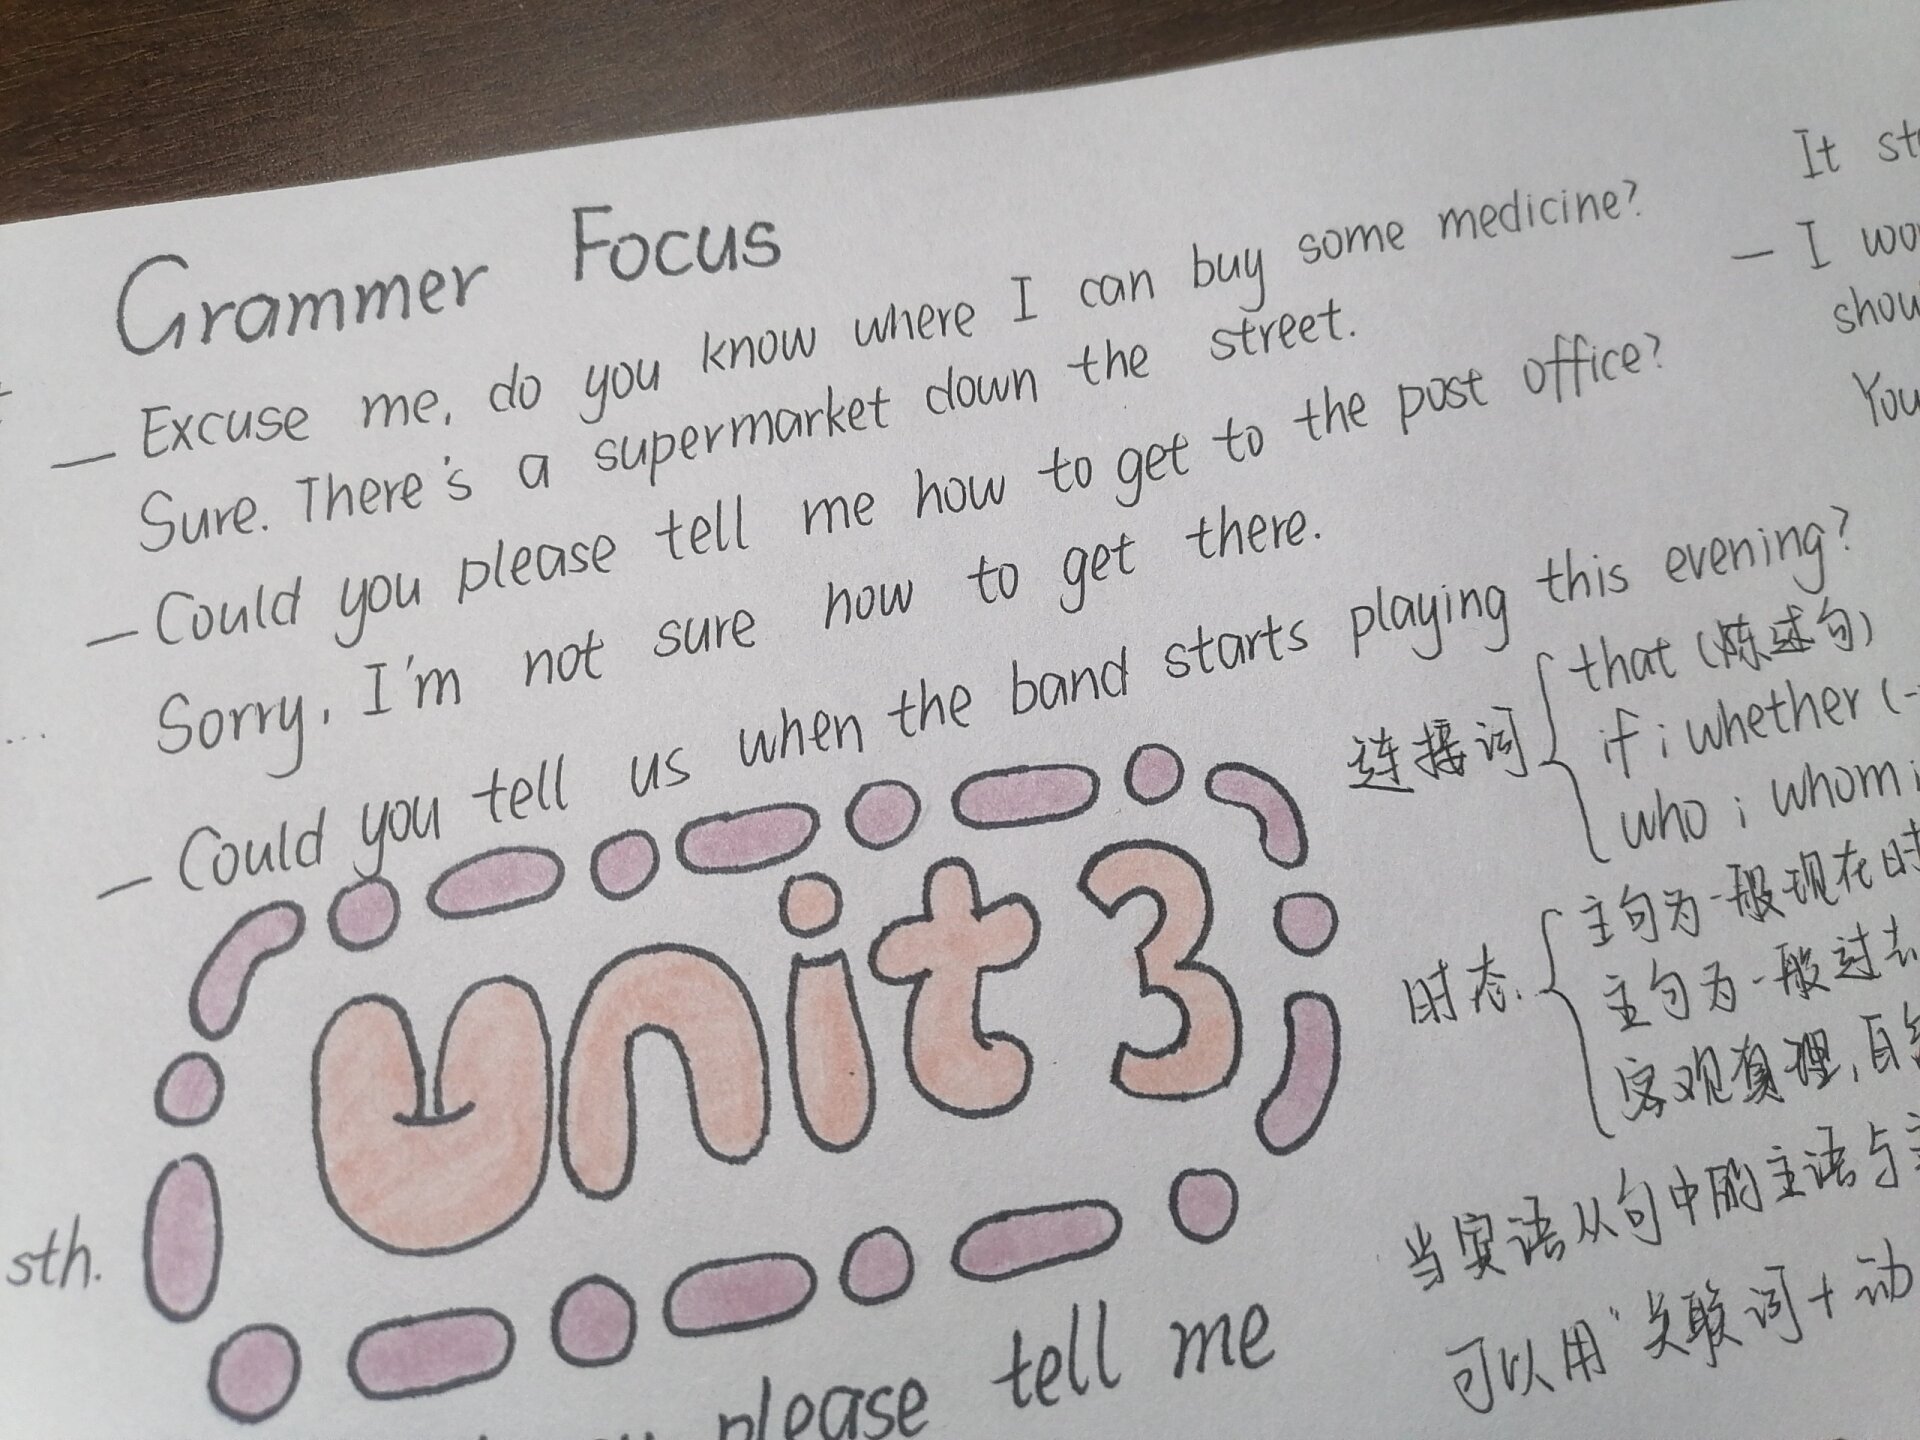 Grammer Focus
— Excuse me, do you know where I can buy some medicine?
Sure. There's a supermarket down the street.
— Could you please tell me how to get to the post office?
Sorry, I'm not sure how to get there.
— Could you tell us when the band starts playing this evening?
It
— I
You
连接词
that (陈述句)
if ; whether (
who ; whom ;
时态.
主句为一般现在时
主句为一般过去
客观真理,自
当宾语从句中的主语与
可以用"关联词+动
unit 3
sth.
please tell me